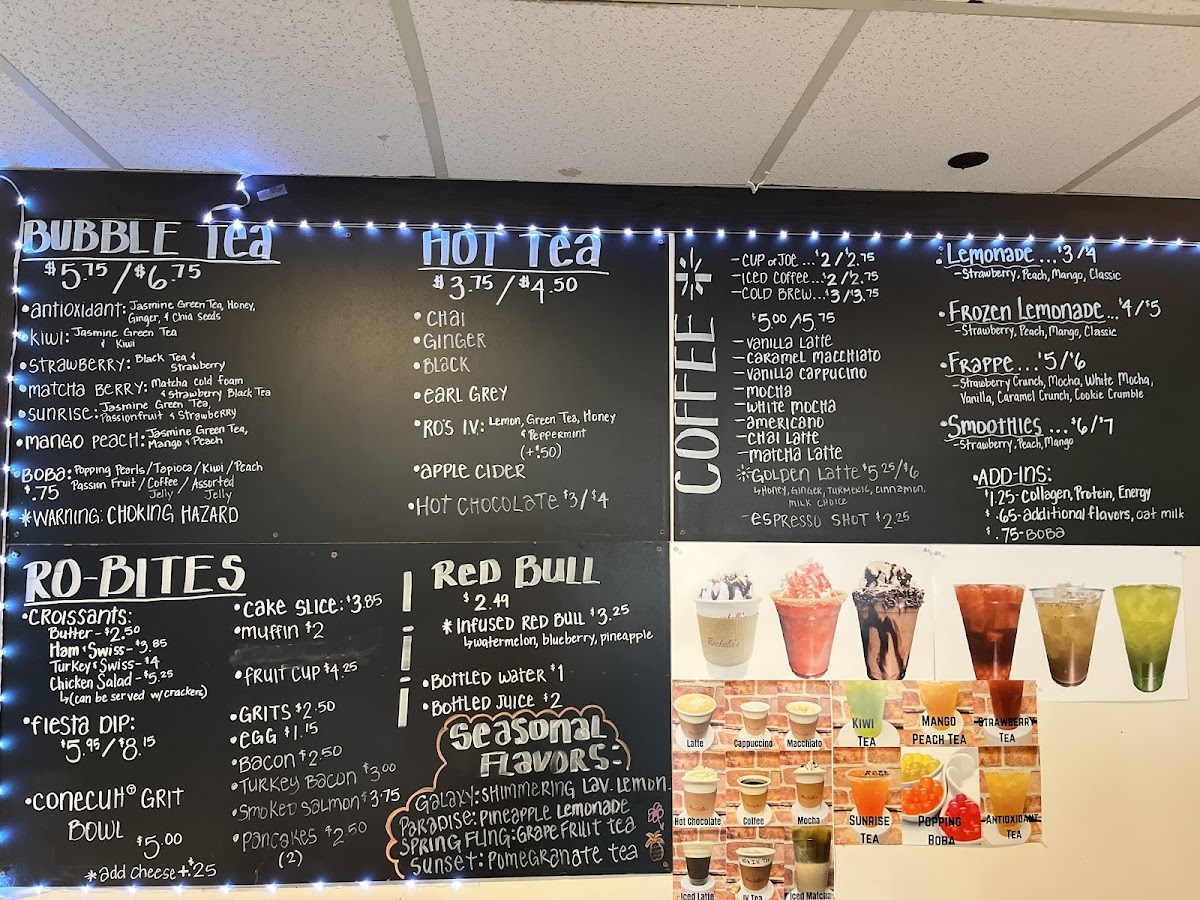 BUBBLE Tea
$5.75/$6.75
•antioxidant: Jasmine Green Tea, Honey,
Ginger, & Chia Seeds
•Kiwi: Jasmine Green Tea
& Kiwi
•STRAWBERRY: Black Tea &
Strawberry
•MATCHA BERRY: Matcha cold foam
& Strawberry Black Tea
•SUNRISE: Jasmine Green Tea,
Passionfruit & Strawberry
•MANGO PEACH: Jasmine Green Tea,
Mango & Peach
BOBA: Popping Pearls/Tapioca/Kiwi/Peach
$.75 Passion Fruit/Coffee/Assorted
Jelly Jelly
*WARNING: CHOKING HAZARD
HOT Tea
$3.75/$4.50
•CHAI
•GINGER
•BLACK
•EARL GREY
•RO'S I.V.: Lemon, Green Tea, Honey
& Peppermint
(+$.50)
•APPLE CIDER
•HOT CHOCOLATE $3/$4
COFFEE
-CUP of JOE...$2/$2.75
-ICED COFFEE...$2/$2.75
-COLD BREW...$3/$3.75
$5.00/5.75
-VANILLA LATTE
-CARAMEL MACCHIATO
-VANILLA CAPPUCINO
-MOCHA
-WHITE MOCHA
-AMERICANO
-CHAI LATTE
-MATCHA LATTE
GOLDEN LATTE $5.25/$6
↳HONEY, GINGER, TURMERIC, CINNAMON,
MILK CHOICE
-ESPRESSO SHOT $2.25
•Lemonade...$3/$4
-Strawberry, Peach, Mango, Classic
•Frozen Lemonade...$4/$5
-Strawberry, Peach, Mango, Classic
•Frappe...$5/$6
-Strawberry Crunch, Mocha, White Mocha,
Vanilla, Caramel Crunch, Cookie Crumble
•Smoothies...$6/$7
-Strawberry, Peach, Mango
•ADD-INS:
$1.25-Collagen, Protein, Energy
$.65-additional flavors, oat milk
$.75-BOBA
RO-BITES
•CROISSANTS:
Butter-$2.50
Ham & Swiss-$3.85
Turkey & Swiss-$4
Chicken Salad-$5.25
↳(can be served w/crackers)
•FIESTA DIP:
$5.95/$8.15
•CONECUH® GRIT
BOWL
$5.00
*add cheese+$.25
•CAKE SLICE: $3.85
•MUFFIN $2
•FRUIT CUP $4.25
•GRITS $2.50
•EGG $1.15
•BACON $2.50
•TURKEY BACON $3.00
•SMOKED SALMON $3.75
•PANCAKES $2.50
(2)
RED BULL
$2.49
*INFUSED RED BULL $3.25
↳watermelon, blueberry, pineapple
•BOTTLED WATER $1
•BOTTLED JUICE $2
Seasonal
FLAVORS:
GALAXY: SHIMMERING LAV. LEMON.
PARADISE: PINEAPPLE LEMONADE
SPRING FLING: GRAPEFRUIT TEA
SUNSET: POMEGRANATE TEA
Latte
Cappuccino
Macchiato
Hot Chocolate
Coffee
Mocha
Iced Latte
IV Tea
Iced Matcha
KIWI
TEA
MANGO
PEACH TEA
STRAWBERRY
TEA
SUNRISE
TEA
POPPING
BOBA
ANTIOXIDANT
TEA